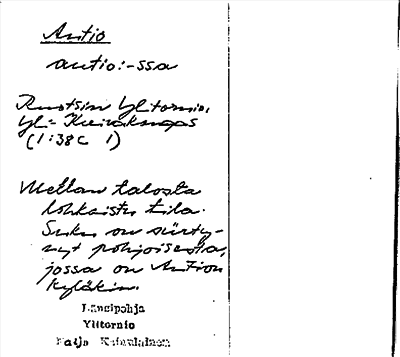 Autio
autio:-ssa
Ruotsin Ylitornio,
Yl= Kuivakangas
(1:38c 1)
Mellan talosta
lohkaistu tila.
Suku on siirty-
nyt pohjoisesta,
jossa on Aution
kyläkin.
Länsipohja
Ylitornio